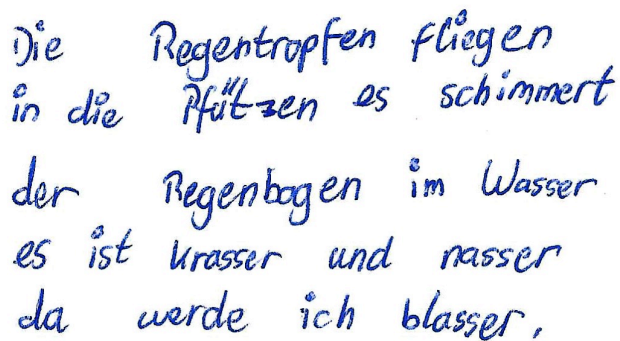 Die Regentropfen fliegen
in die Pfützen es schimmert
der Regenbogen im Wasser
es ist krasser und nasser
da werde ich blasser.